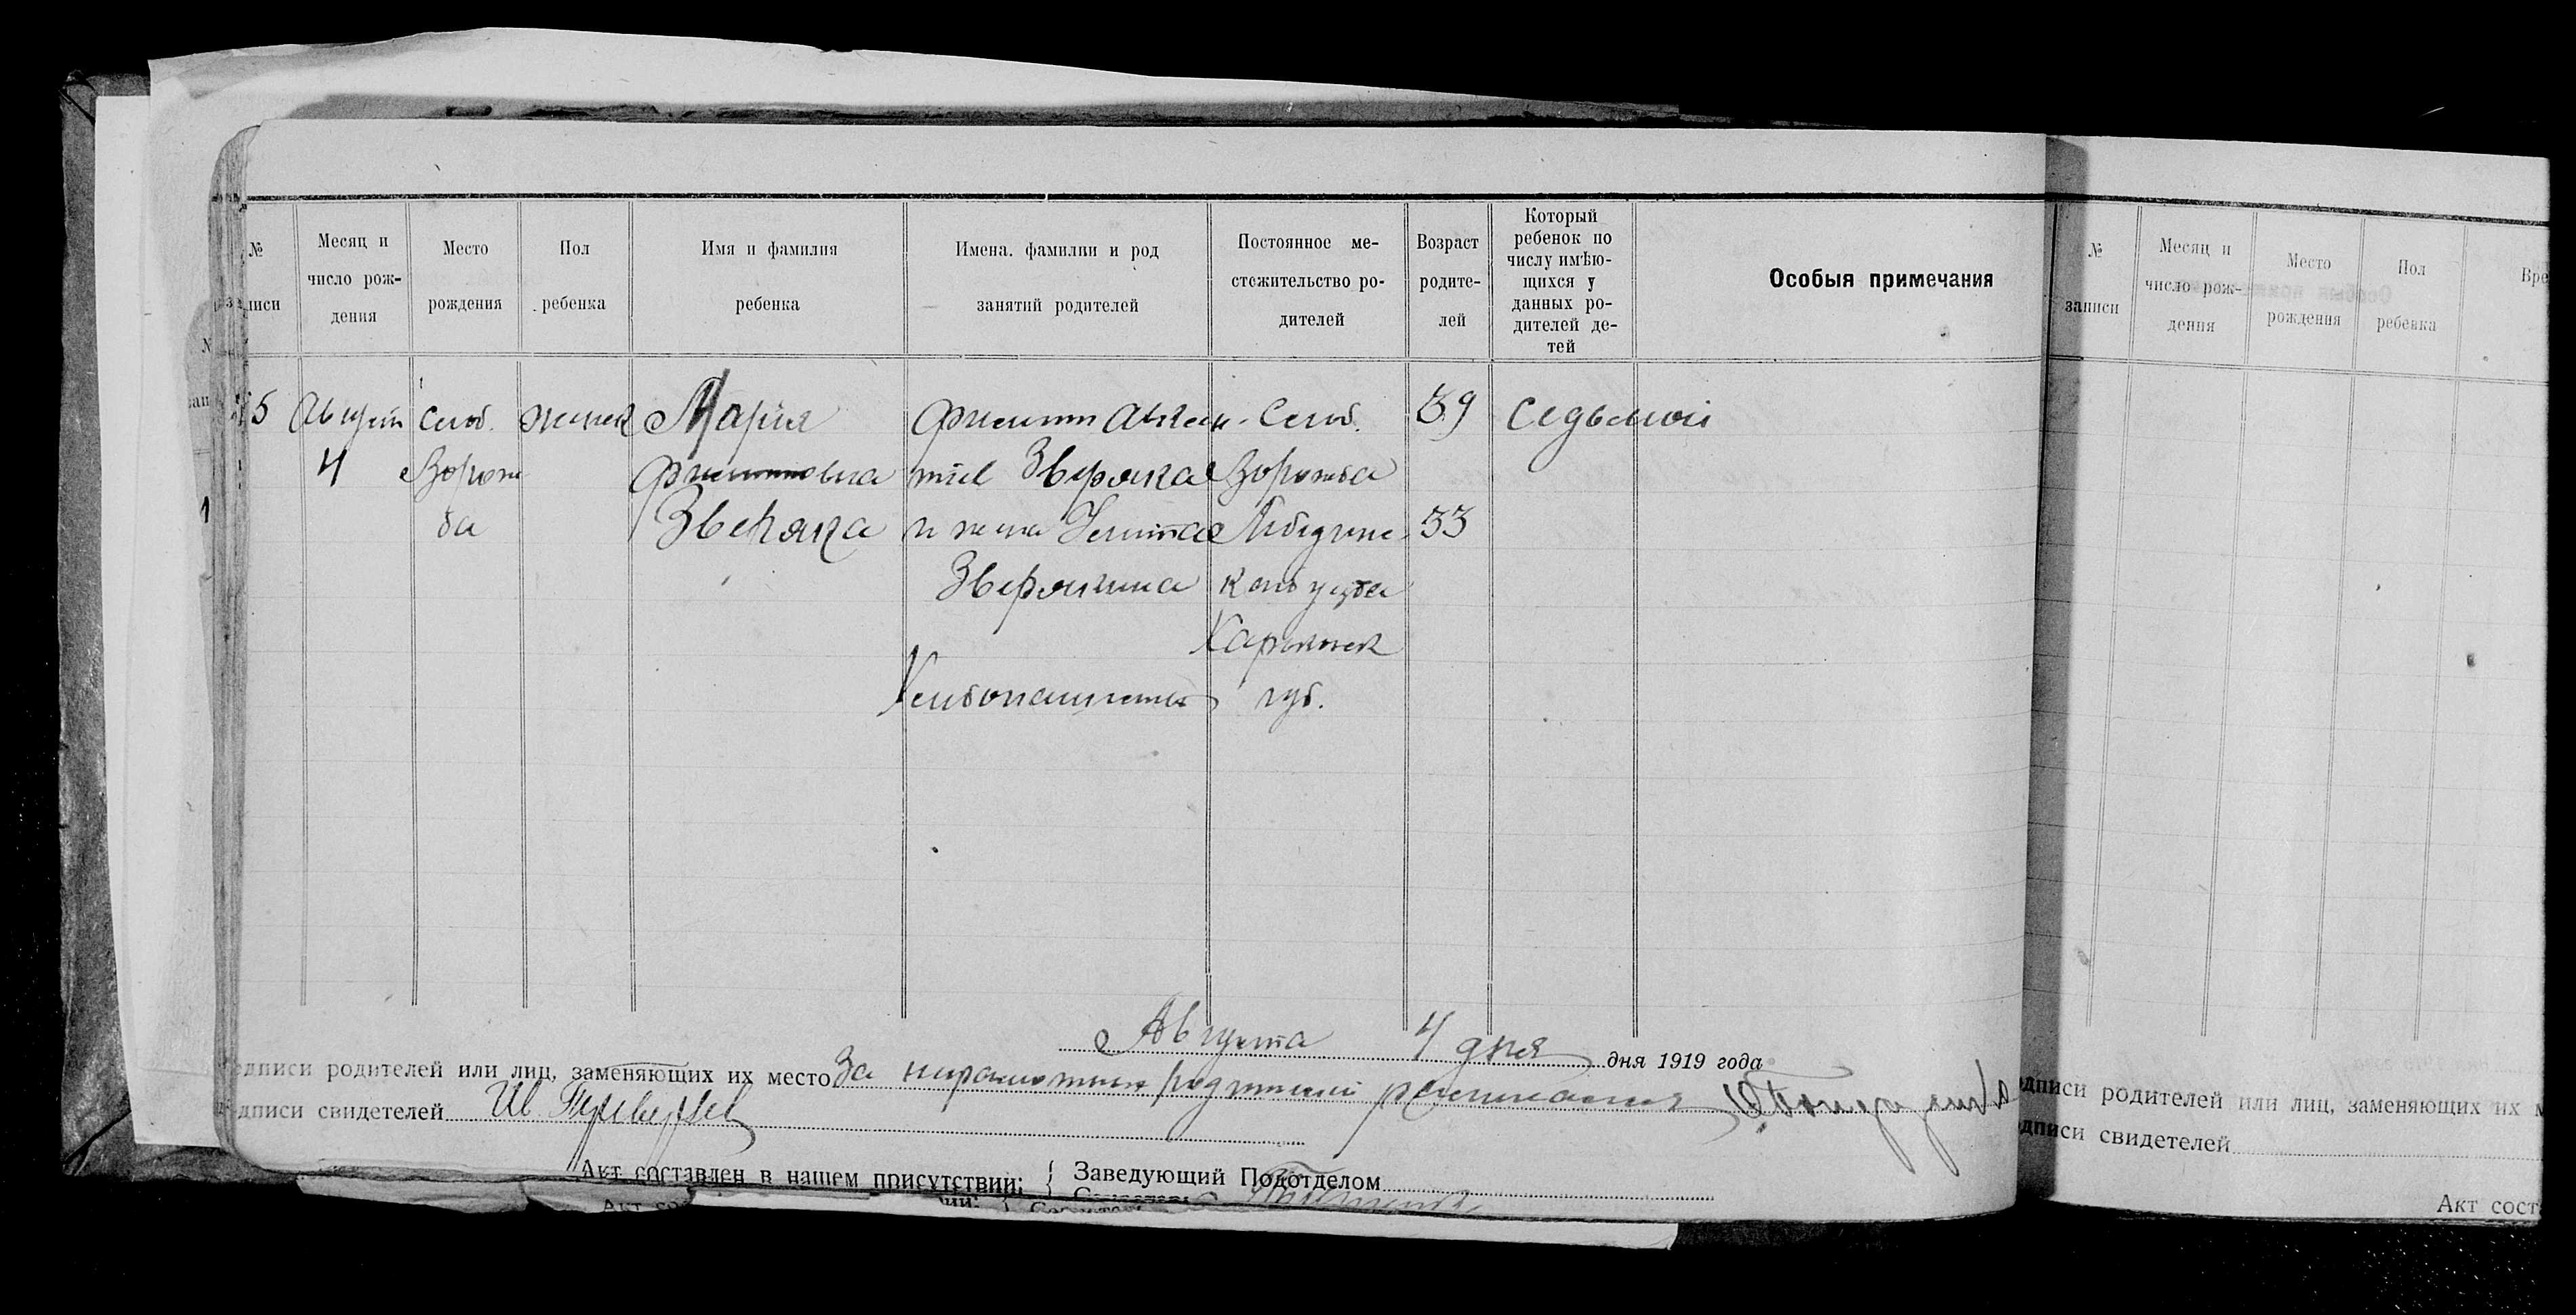 № писи
Месяц и число рождения
Место рождения
Пол ребенка
Имя и фамилия ребенка
Имена, фамилии и род занятий родителей
Постоянное местожительство родителей
Возраст родителей
Который ребенок по числу имѣющихся у данных родителей детей
Особыя примечания
5
Август
4
Слоб.
Ворож
ба
женск
Мария
Филипповна
Зверяка
Филипп
Зверяка
и жена
Зверякина
Хлебопашество
Слоб.
Ворожба
Лебединс
каго уезда
Харьковск
губ.
39
33
Седьмой
Августа 4 дня дня 1919 года
одписи родителей или лиц, заменяющих их место За неграмотных родителей расписался
одписи свидетелей Ив.
Акт составлен в нашем присутствии: { Заведующий Подотделом
№ записи
Месяц и число рождения
Место рождения
Пол ребенка
Вре
одписи родителей или лиц, заменяющих их м
одписи свидетелей
Акт сост